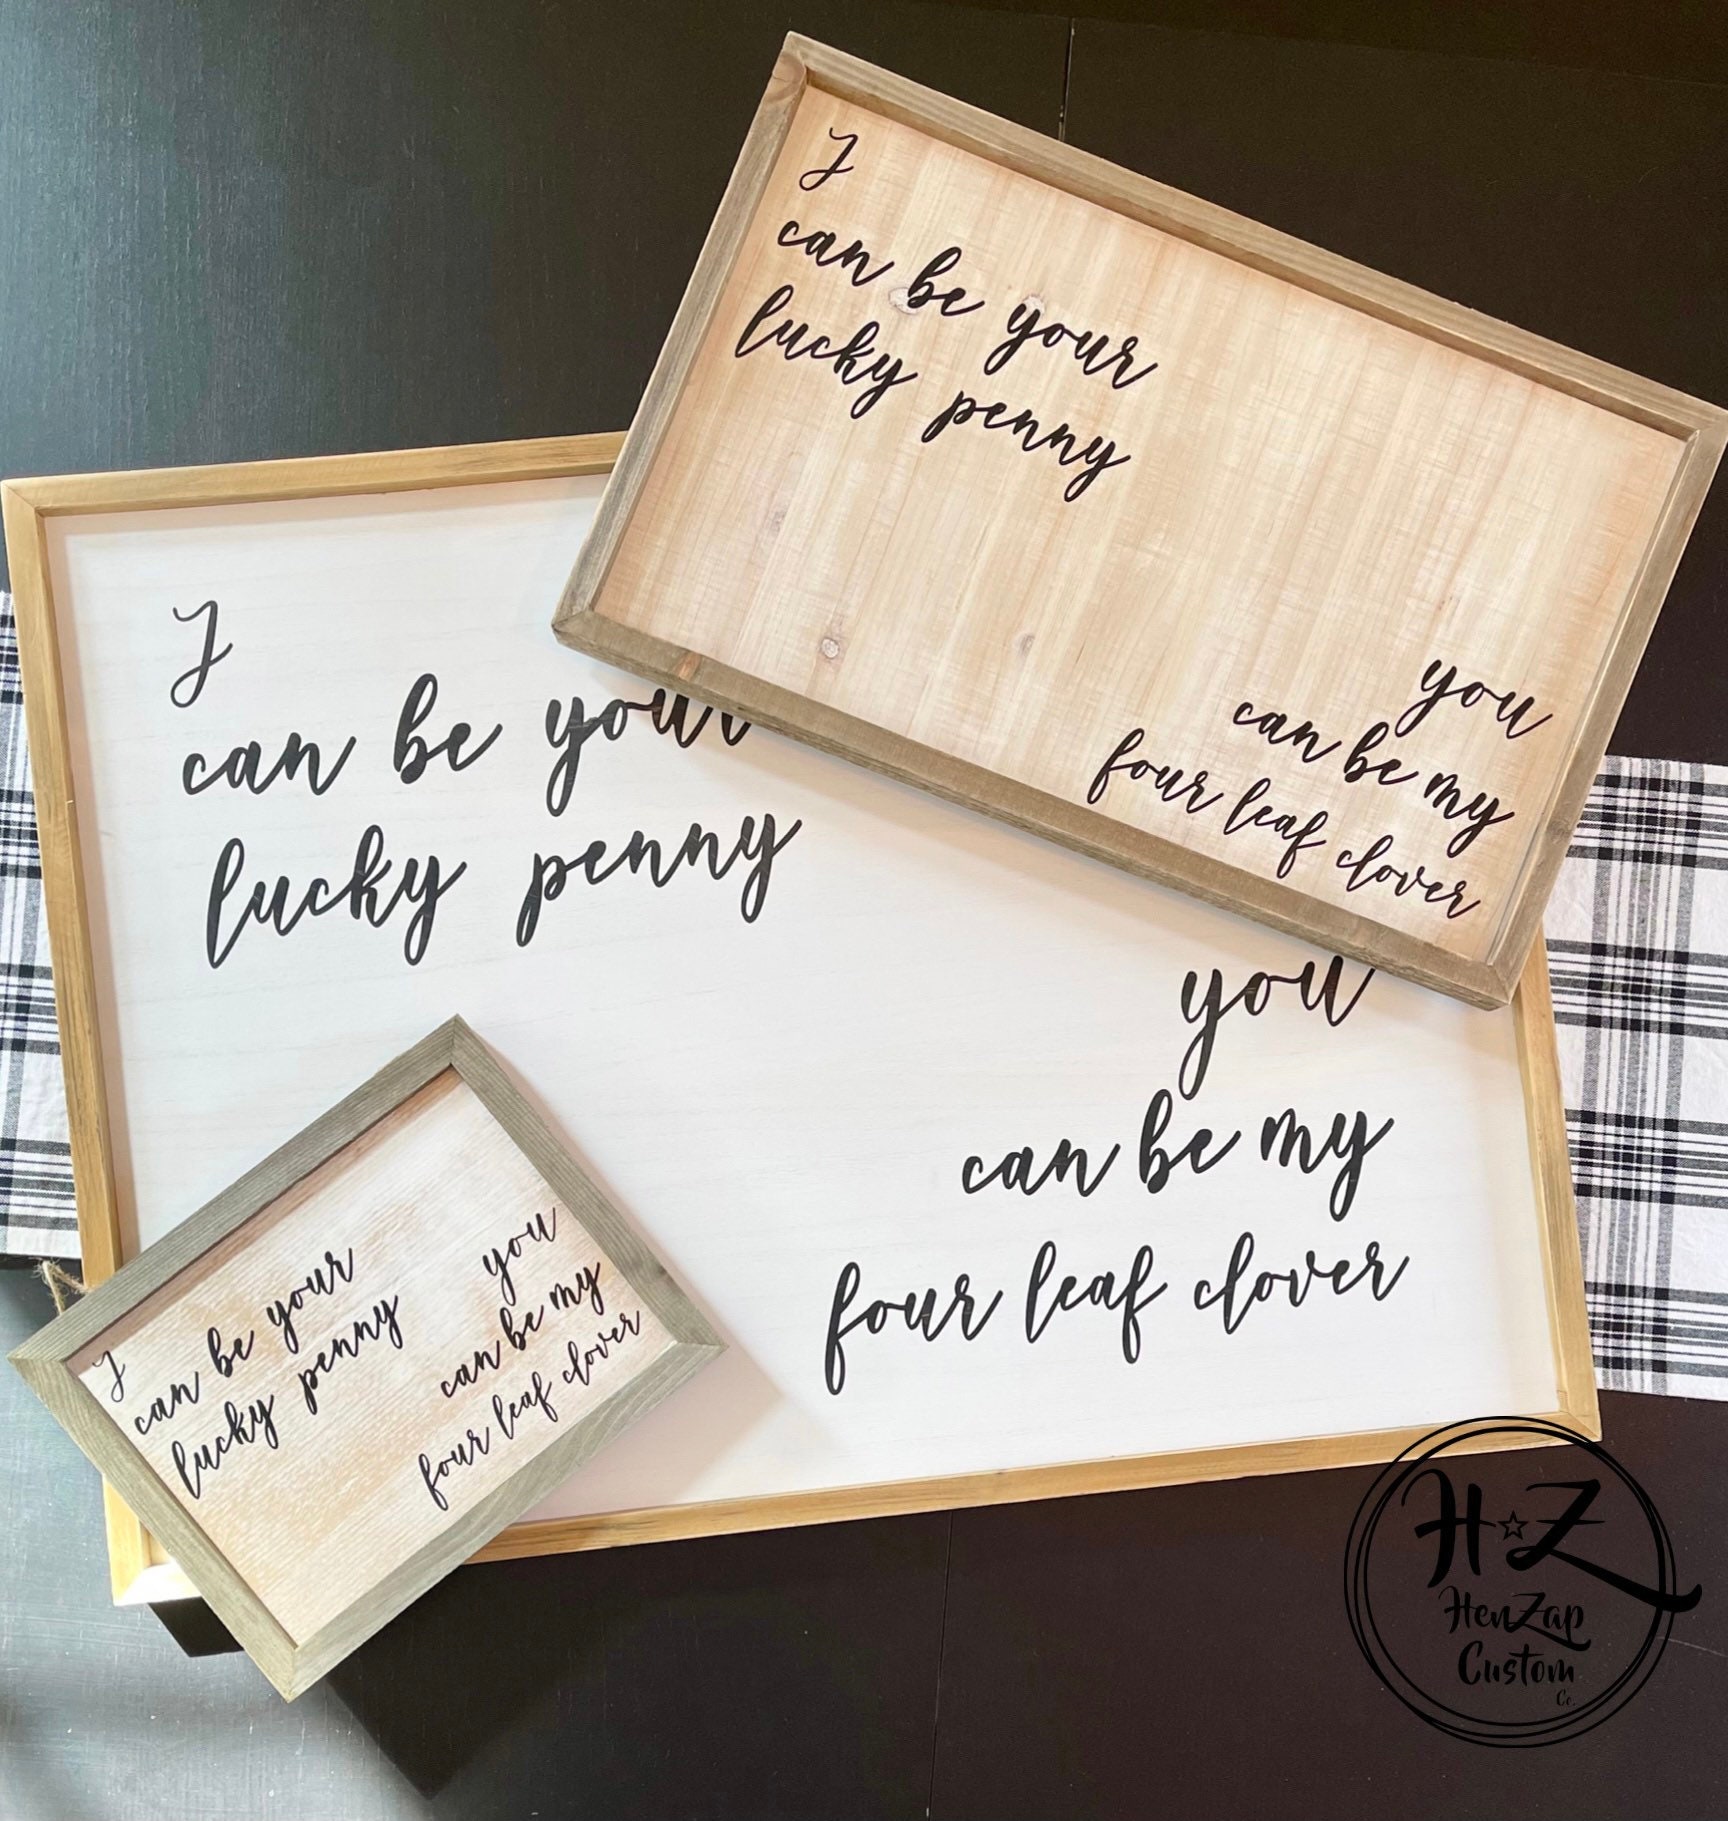 I
can be your
lucky penny
you
can be my
four leaf clover
I
can be your
lucky penny
you
can be my
four leaf clover
I
can be your
lucky penny
you
can be my
four leaf clover
H☆Z
HenZap
Custom
Co.